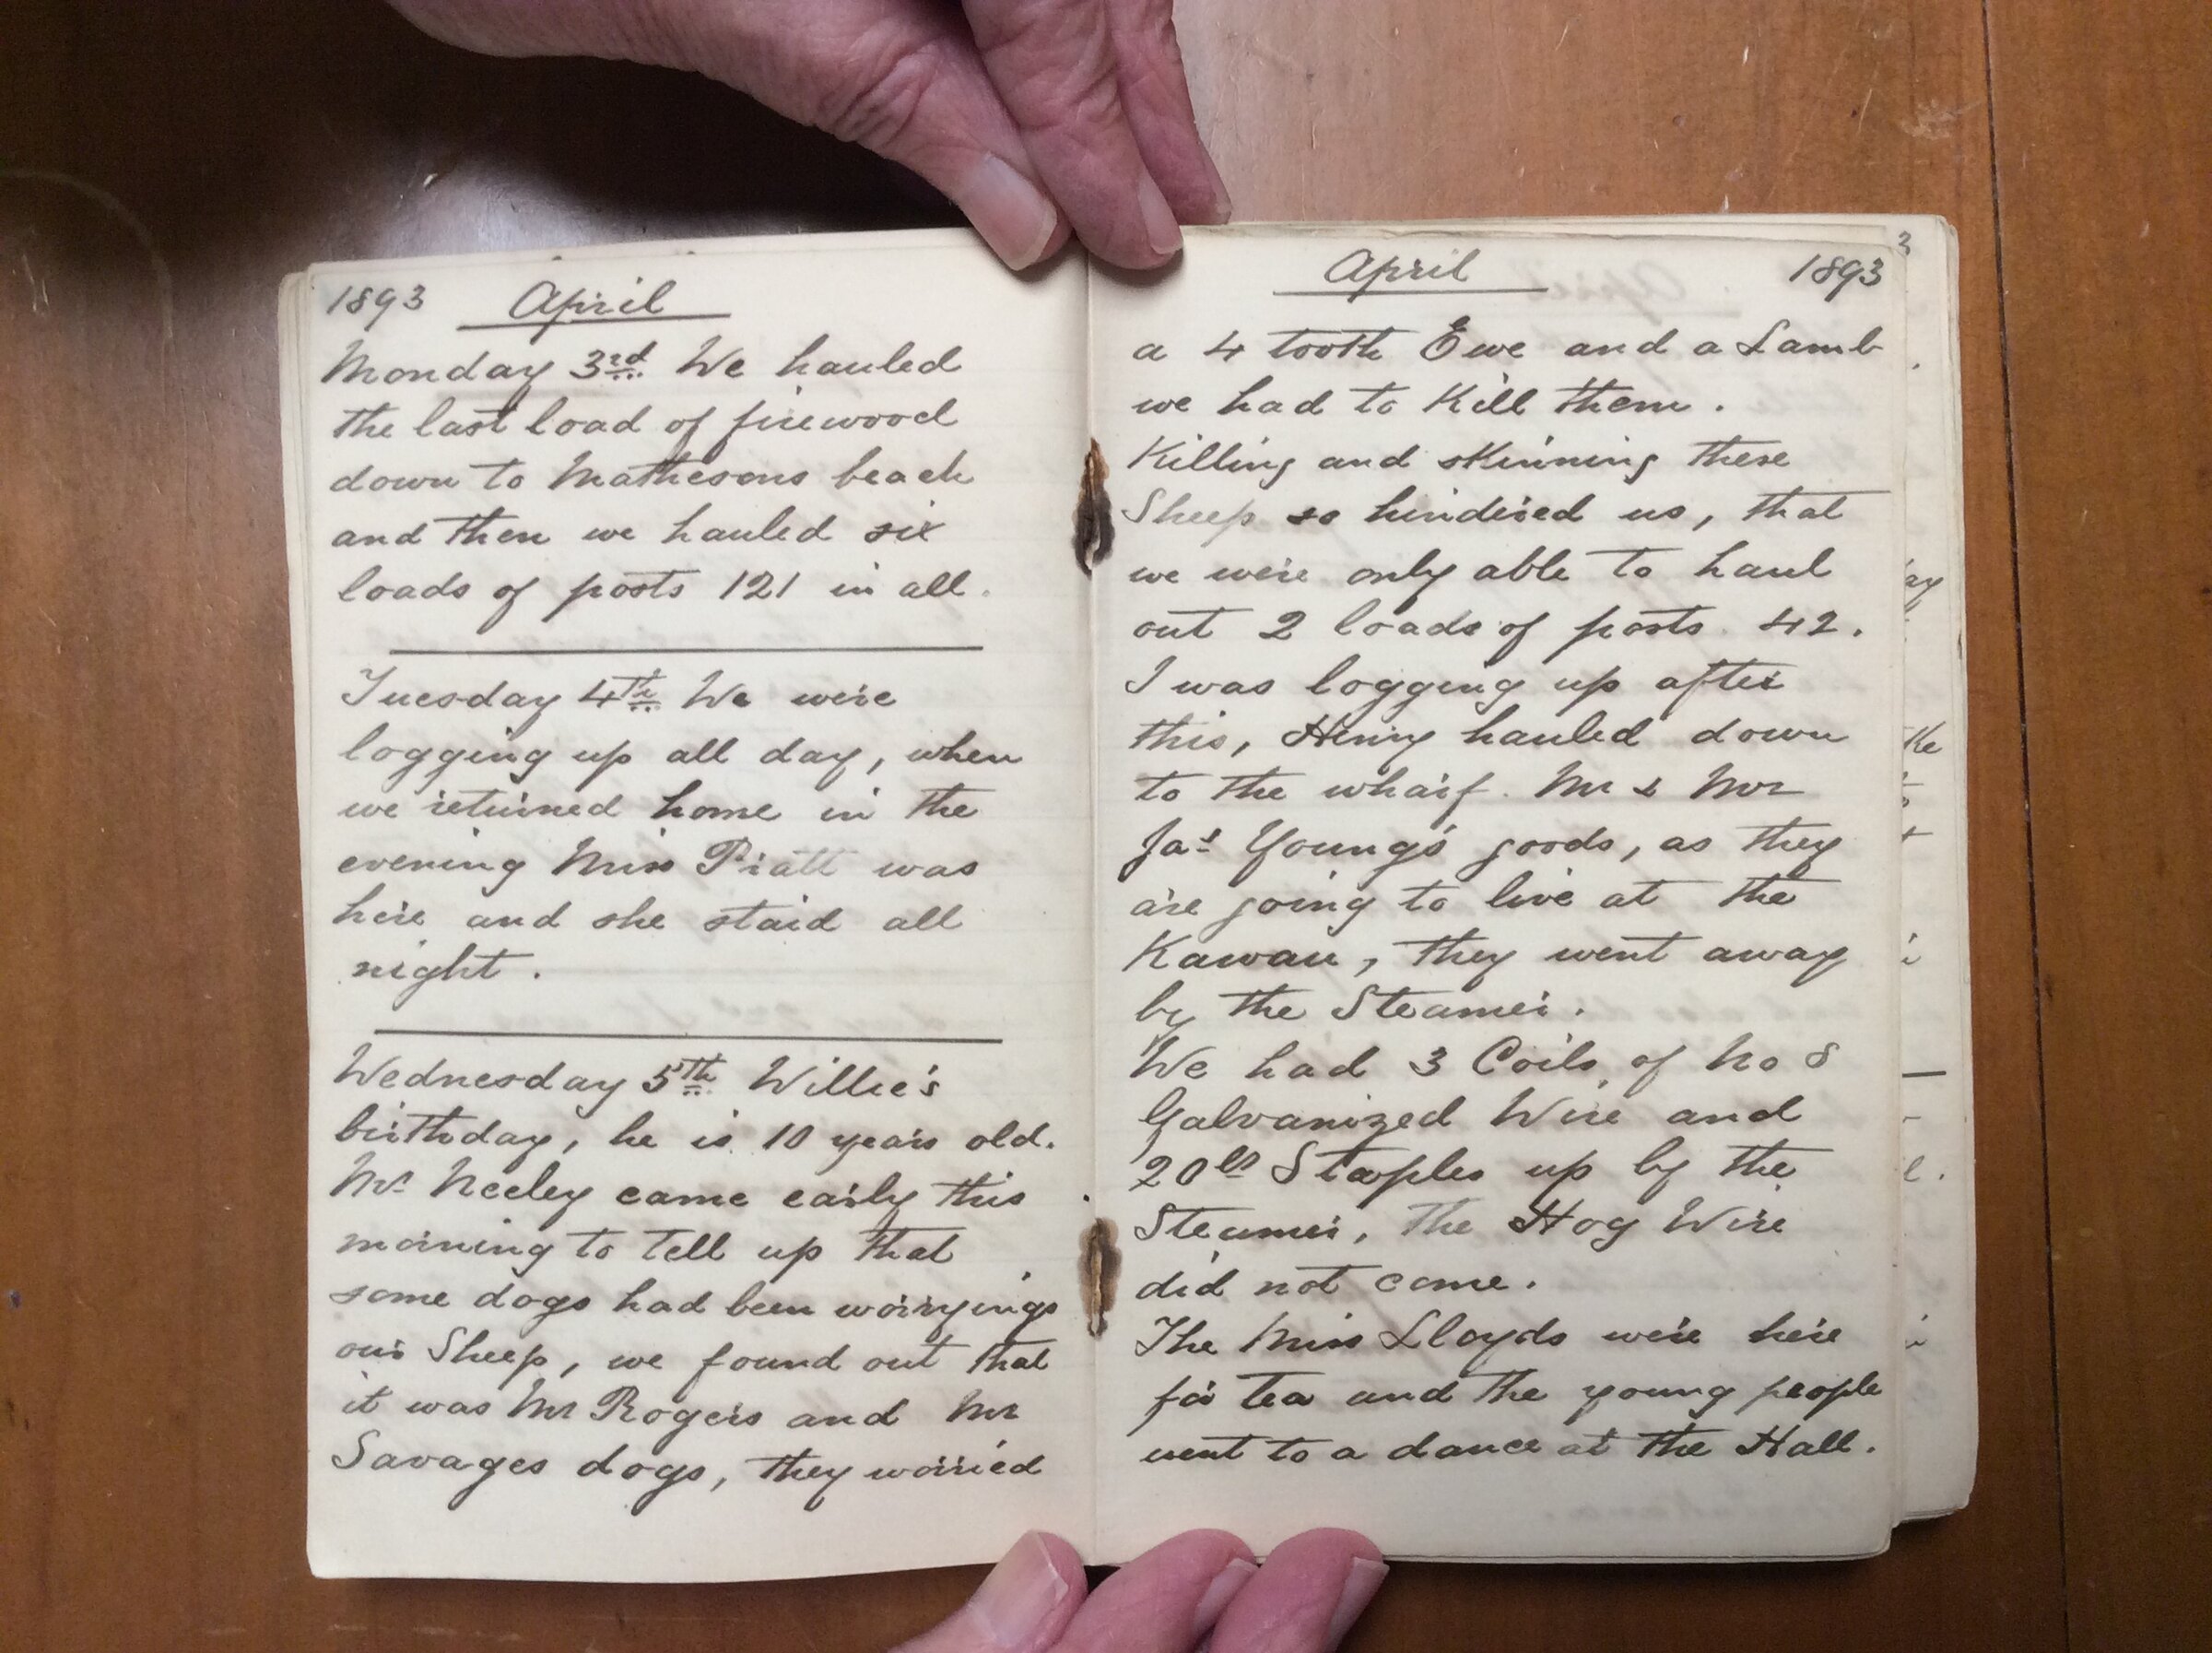 1893 April
Monday 3rd We hauled
the last load of firewood
down to Mathesons beach
and then we hauled six
loads of posts 121 in all.
Tuesday 4th We were
logging up all day, when
we returned home in the
evening Miss Pratt was
here and she staid all
night.
Wednesday 5th Willie's
birthday, he is 10 years old.
Mr Neeley came early this
morning to tell up that
some dogs had been worryings
our Sheep, we found out that
it was Mr Rogers and Mr
Savages dogs, they worried
April 1893
a 4 tooth Ewe and a Lamb
we had to Kill them.
Killing and sKinning these
Sheep so hindered us, that
we were only able to haul
out 2 loads of posts. 42.
I was logging up after
this, Henry hauled down
to the wharf. Mr & Mrs
Jas Young's goods, as they
are going to live at the
Kawau, they went away
by the Steamer.
We had 3 Coils of No 8
Galvanized Wire and
20lb Staples up by the
Steamer, The Hog Wire
did not come.
The Miss Lloyds were here
for tea and the young people
went to a dance at the Hall.